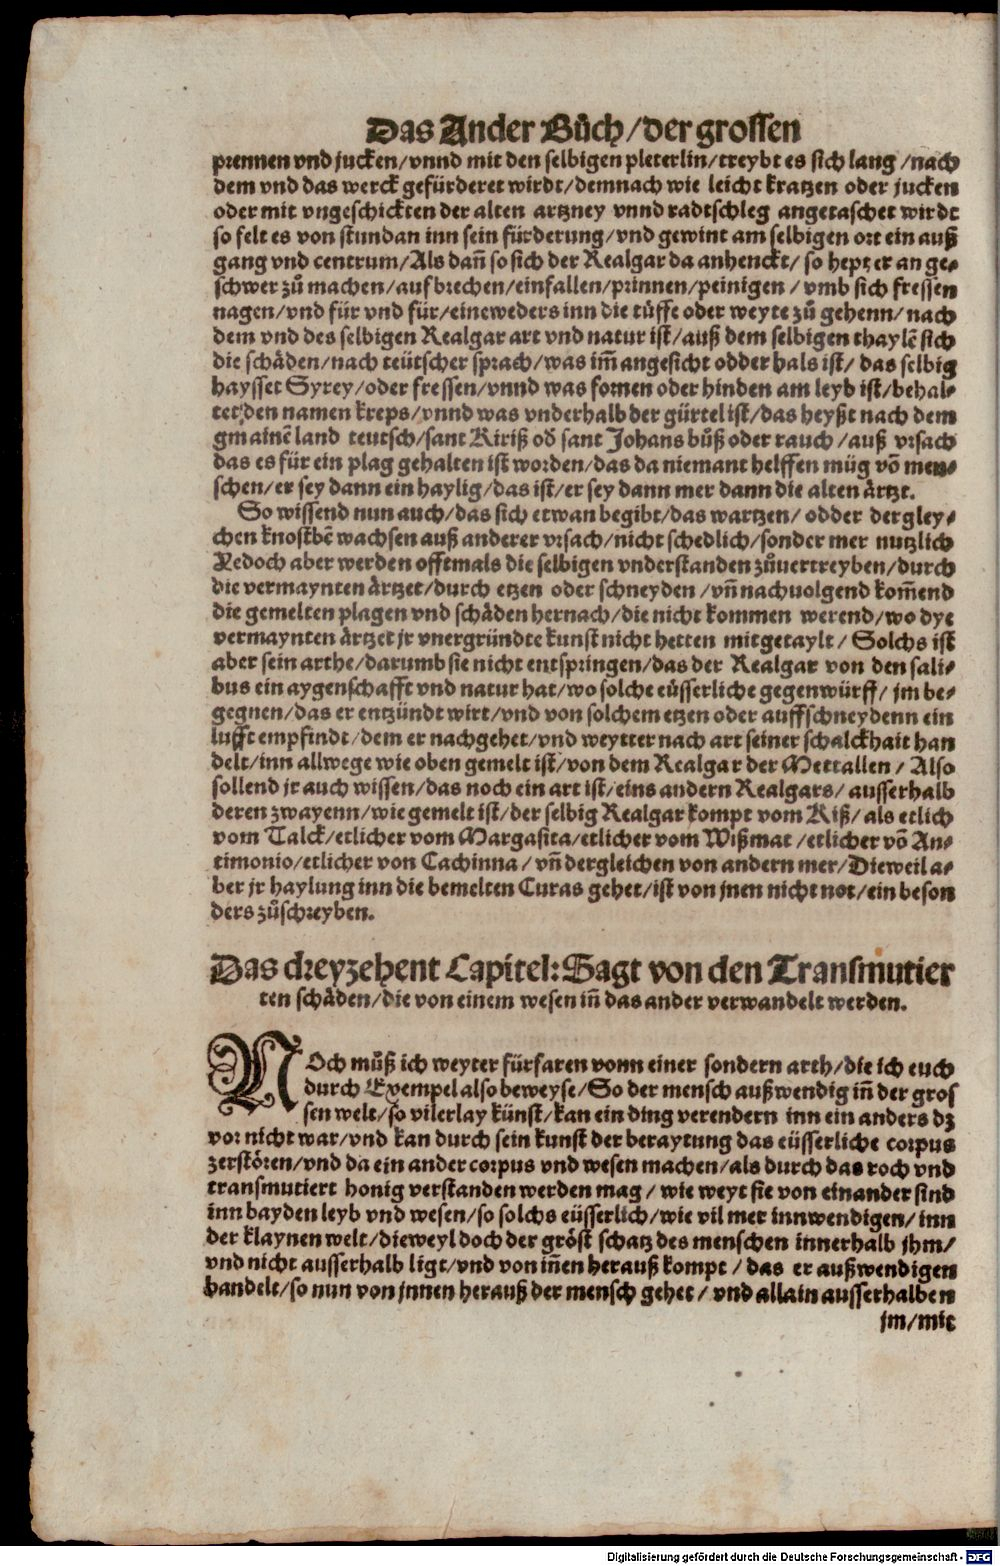 Das Ander Bůch/der grossen
prennen vnd jucken/vnnd mit den selbigen pleterlin/treybt es sich lang/nach
dem vnd das werck gefürderet wirdt/demnach wie leicht kratzen oder jucken
oder mit vngeschickten der alten artzney vnnd radtschleg angetaschet wirdt
so felt es von stundan inn sein fürderung/vnd gewint am selbigen ort ein auß
gang vnd centrum/Als dañ so sich der Realgar da anhenckt/so heptz er an ge⸗
schwer zů machen/aufbrechen/einfallen/prinnen/peinigen/vmb sich fressen
nagen/vnd für vnd für/eineweders inn die tüffe oder weyte zů gehenn/nach
dem vnd des selbigen Realgar art vnd natur ist/auß dem selbigen thaylē sich
die schäden/nach teütscher sprach/was im̃ angesicht odder hals ist/das selbig
haysset Syrey/oder fressen/vnnd was fornen oder hinden am leyb ist/behal⸗
tet/den namen kreps/vnnd was vnderhalb der gürtel ist/das heyßt nach dem
gmainē land teutsch/sant Kiriß od̃ sant Johans bůß oder rauch/auß vrsach
das es für ein plag gehalten ist worden/das da niemant helffen müg võ men⸗
schen/er sey dann ein haylig/das ist/er sey dann mer dann die alten ärtzt.
So wissend nun auch/das sich etwan begibt/das wartzen/odder dergley⸗
chen knostbē wachsen auß anderer vrsach/nicht schedlich/sonder mer nutzlich
Yedoch aber werden offtmals die selbigen vnderstanden zůuertreyben/durch
die vermaynten ärtzet/durch etzen oder schneyden/vñ nachuolgend kom̃end
die gemelten plagen vnd schäden hernach/die nicht kommen werend/wo dye
vermaynten ärtzet jr vnergründte kunst nicht hetten mitgetaylt/Solchs ist
aber sein arthe/darumb sie nicht entspringen/das der Realgar von den sali⸗
bus ein aygenschafft vnd natur hat/wo solche eüsserliche gegenwürff/jm be⸗
gegnen/das er entzündt wirt/vnd von solchem etzen oder auffschneydenn ein
lufft empfindt/dem er nachgehet/vnd weytter nach art seiner schalckhait han
delt/inn allwege wie oben gemelt ist/von dem Realgar der Mettallen/Also
sollend jr auch wissen/das noch ein art ist/eins andern Realgars/ausserhalb
deren zwayenn/wie gemelt ist/der selbig Realgar kompt vom Kiß/als etlich
vom Talck/etlicher vom Margasita/etlicher vom Wißmat/etlicher võ An⸗
timonio/etlicher von Cachinna/vñ dergleichen von andern mer/Dieweil a⸗
ber jr haylung inn die bemelten Curas gehet/ist von jnen nicht not/ein beson
ders zůschreyben.
Das dreyzehent Capitel: Sagt von den Transmutier
ten schäden/die von einem wesen iñ das ander verwandelt werden.
NOch můß ich weyter fürfaren vonn einer sondern arth/die ich euch
durch Exempel also beweyse/So der mensch außwendig iñ der gros
sen welt/so vilerlay künst/kan ein ding verendern inn ein anders dz
vor nicht war/vnd kan durch sein kunst der beraytung das eüsserliche corpus
zerstören/vnd da ein ander corpus vnd wesen machen/als durch das roch vnd
transmutiert honig verstanden werden mag/wie weyt sie von einander sind
inn bayden leyb vnd wesen/so solchs eüsserlich/wie vil mer innwendigen/inn
der klaynen welt/dieweyl doch der gröst schatz des menschen innerhalb jhm/
vnd nicht ausserhalb ligt/vnd von iñen herauß kompt/das er außwendigen
handelt/so nun von jnnen herauß der mensch gehet/vnd allain ausserhalben
jm/mit
Digitalisierung gefördert durch die Deutsche Forschungsgemeinschaft - DFG